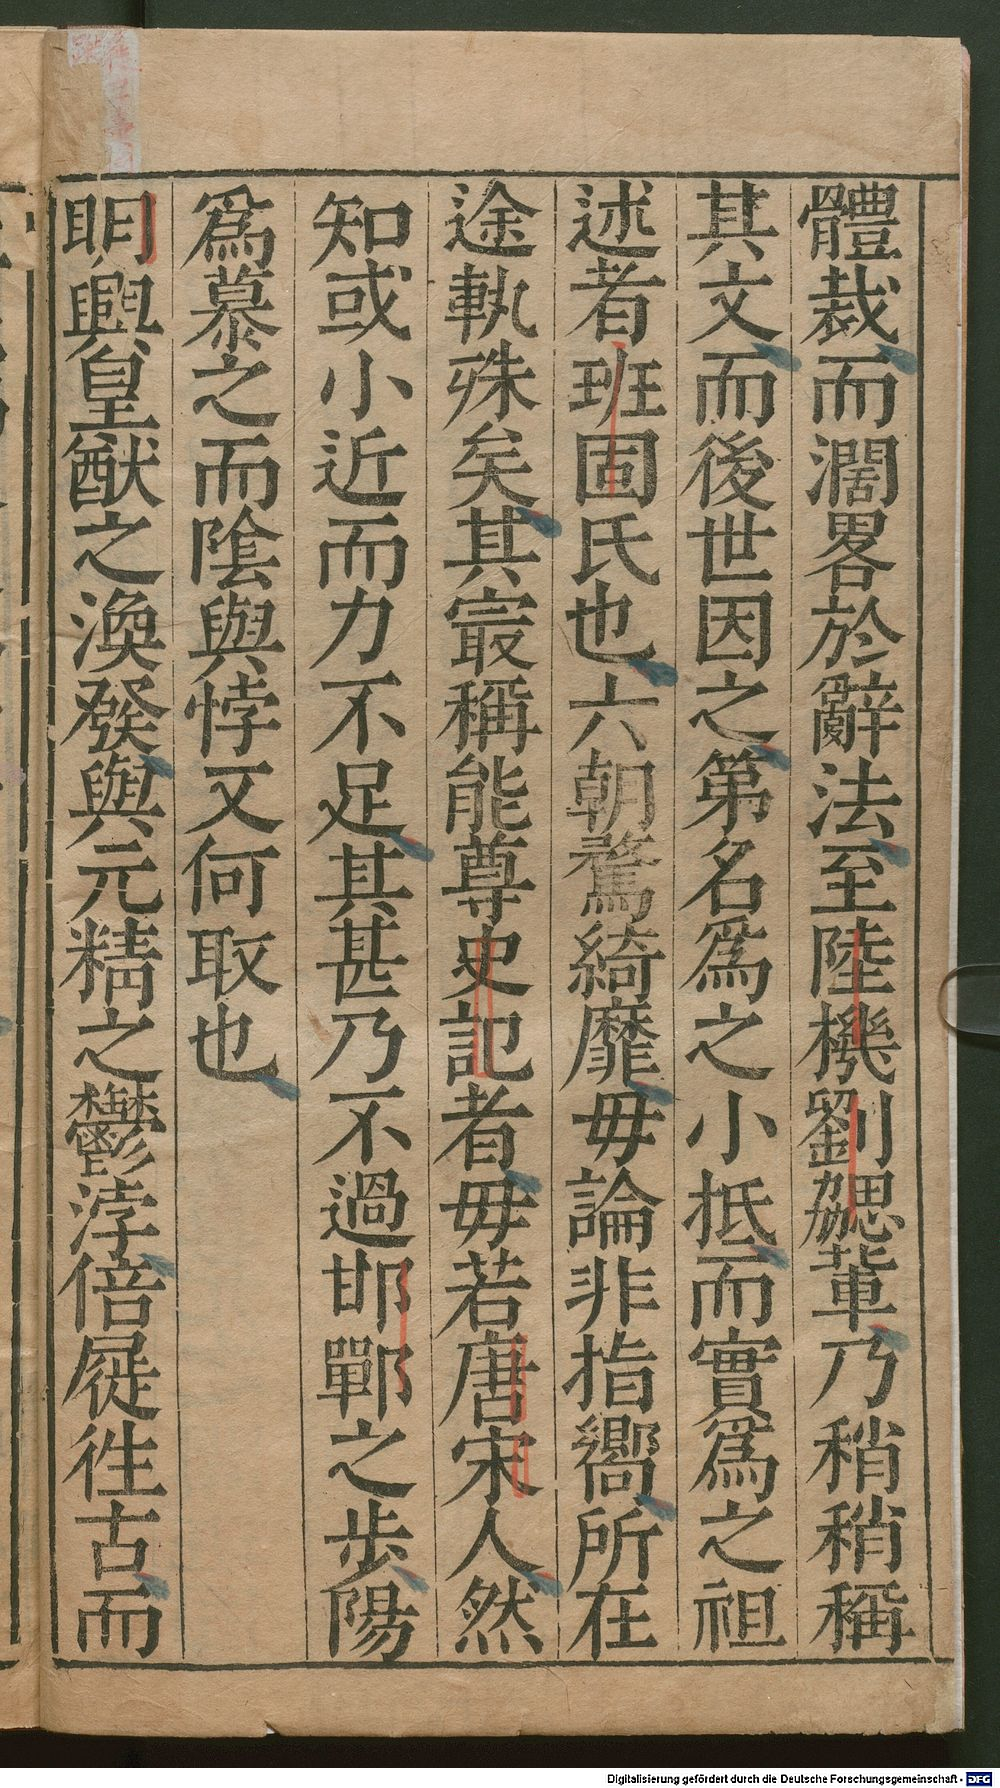 體裁而濶畧於辭法至陸機劉勰輩乃稍稍稱
其文而後世因之第名爲之小抵而實爲之祖
述者班固氏也六朝騖綺靡毋論非指嚮所在
途執殊矣其㝡稱能尊史記者毋若唐宋人然
知或小近而力不足其甚乃不過邯鄲之步陽
爲慕之而隂與悖又何取也
明興皇猷之渙發與元精之鬱浡倍屣徃古而
Digitalisierung gefördert durch die Deutsche Forschungsgemeinschaft - DFG